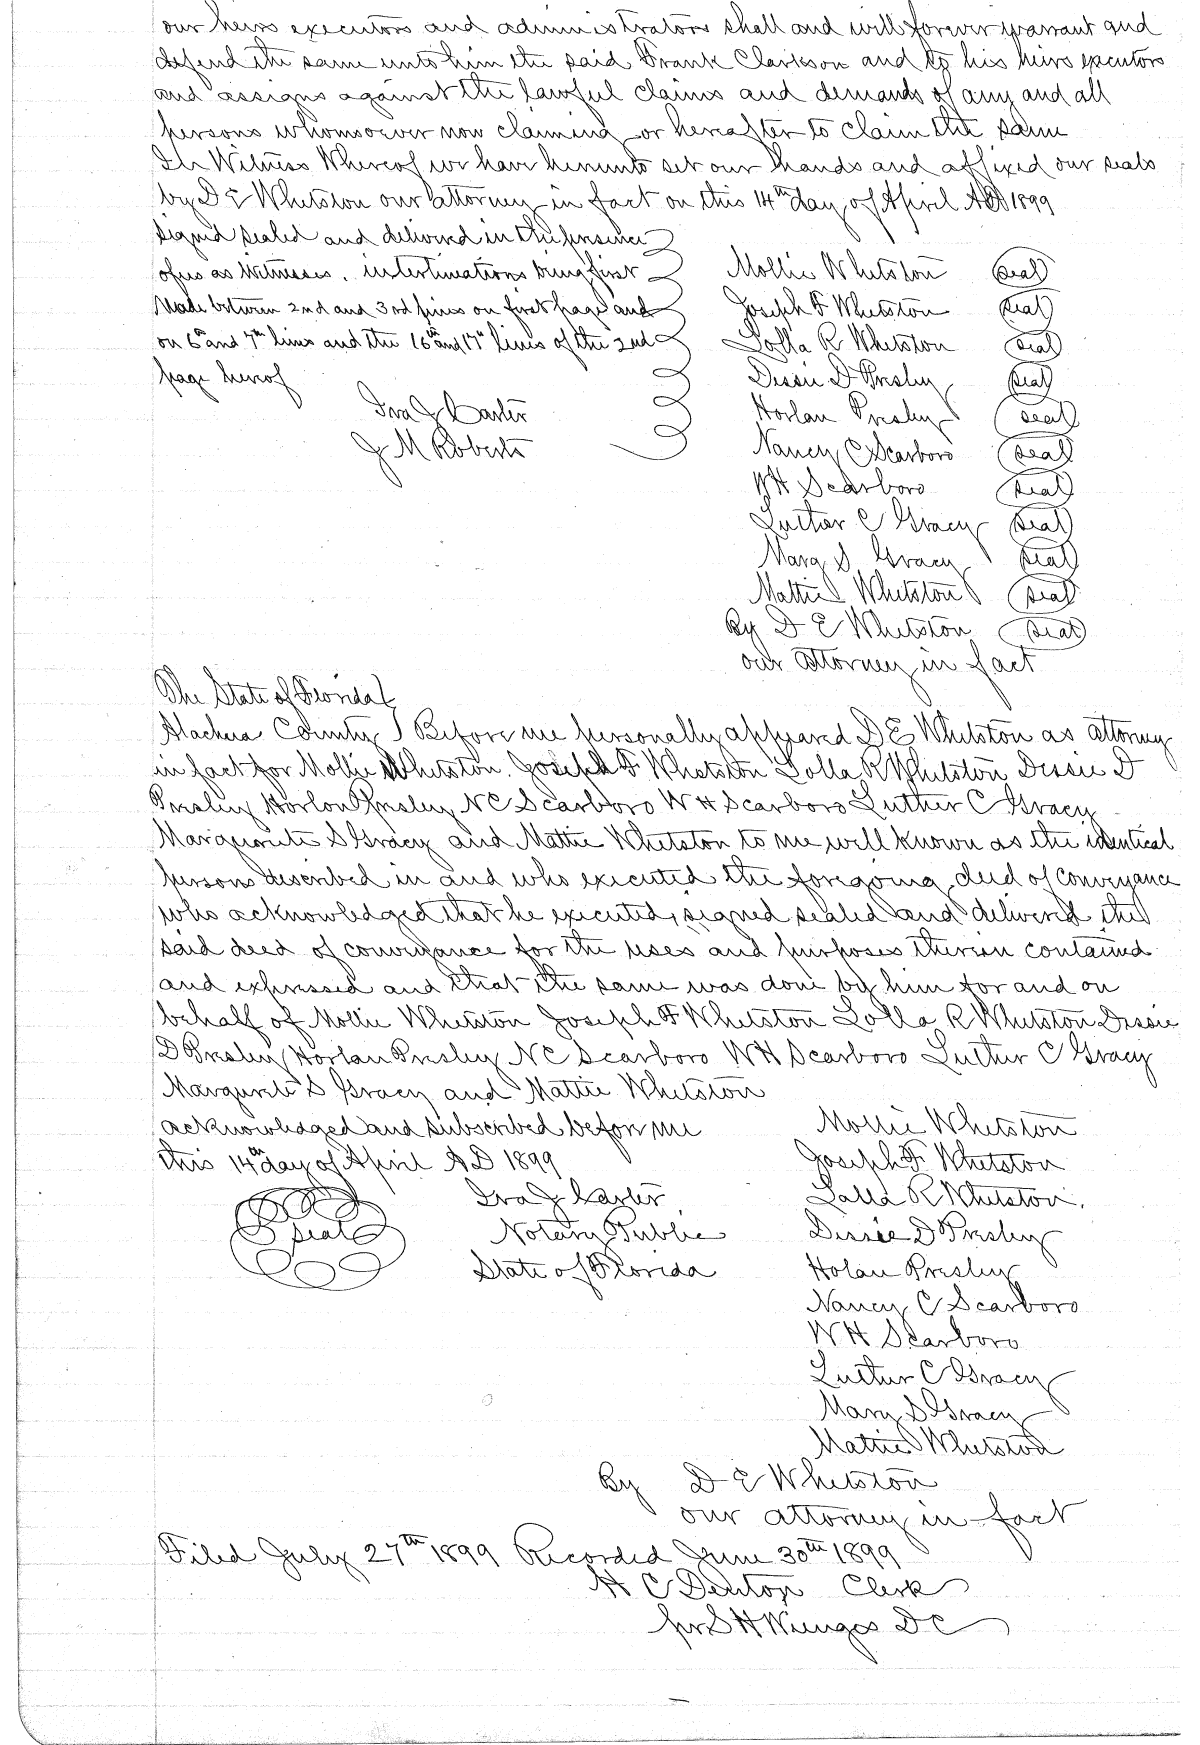 our heirs executors and administrators shall and will forever warrant and
defend the same unto him the said Frank Clarkson and to his heirs executors
and assigns against the lawful claims and demands of any and all
persons whomsoever now claiming or hereafter to claim the same
In Witness Whereof we have hereunto set our hands and affixed our seals
by D E Whetston our attorney in fact on this 14th day of April AD 1899
signed sealed and delivered in the presence
of us as witnesses. interlineations being first
Made between 2nd and 3rd lines on first page and
on 6th and 7th lines and the 16th and 17th lines of the 2nd
page hereof
Ira J Carter
J M Roberts
Mollie Whetston seal
Joseph F Whetston seal
Lolla R Whetston seal
Dessie D Presley seal
Horlan Presley seal
Nancy C Scarboro seal
W H Scarboro seal
Luther C Gracy seal
Mary S Gracy seal
Mattie Whetston seal
By D E Whetston seal
our attorney in fact
The State of Florida
Alachua County Before me personally appeared D E Whetston as attorney
in fact for Mollie Whetston Joseph F Whetston Lolla R Whetston Dessie D
Presley Horlon Presley N C Scarboro W H Scarboro Luther C Gracy
Marguerite S Gracy and Mattie Whetston to me well known as the identical
persons described in and who executed the foregoing deed of conveyance
who acknowledged that he executed, signed sealed and delivered the
said deed of conveyance for the uses and purposes therein contained
and expressed and that the same was done by him for and on
behalf of Mollie Whetston Joseph F Whetston Lolla R Whetston Dessie
D Presley Horlan Presley N C Scarboro W H Scarboro Luther C Gracy
Margurite S Gracy and Mattie Whetston
acknowledged and subscribed before me
this 14th day of April AD 1899
Ira J Carter
seal Notary Public
State of Florida
Mollie Whetston
Joseph F Whetston
Lolla R Whetston.
Dessie D Presley
Holan Presley
Nancy C Scarboro
W H Scarboro
Luther C Gracy
Mary S Gracy
Mattie Whetston
By D E Whetston
our attorney in fact
Filed July 27th 1899 Recorded June 30th 1899
H C Denton Clerk
per S H Wienges D C